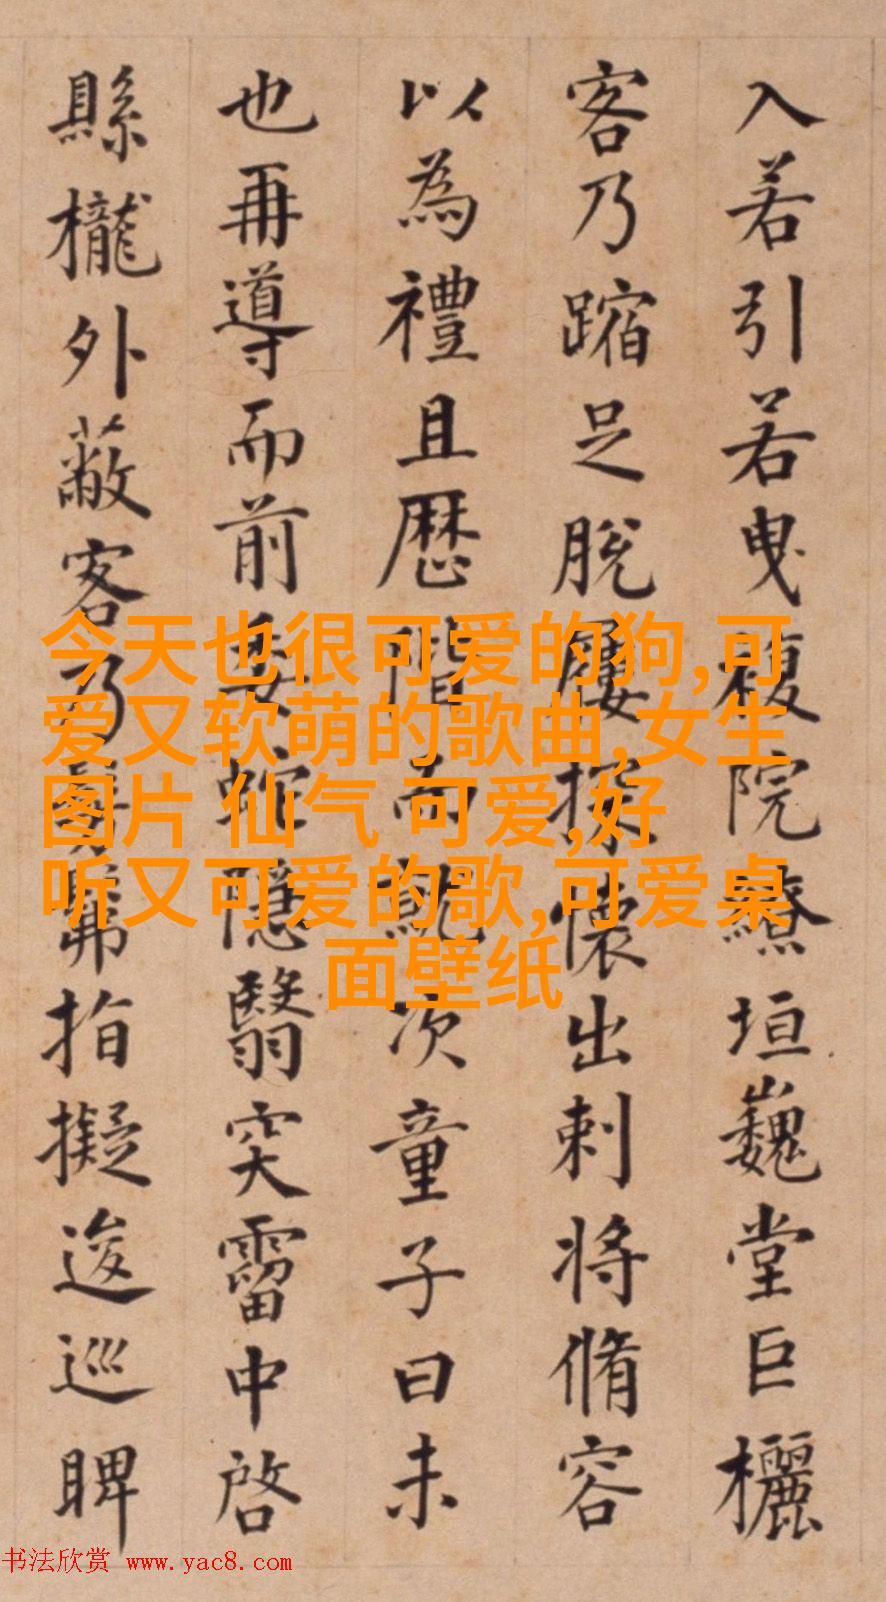 入若引若曳複院繚垣巍堂巨欐
客乃蹜足脫屨探懷出刺將脩容
以為禮且歷階而就次童子曰未
也再導而前委蛇隱翳突霤中啓
縣櫳外蔽客乃髣髴指擬逡巡睥
今天也很可爱的狗,可
爱又软萌的歌曲,女生
图片 仙气 可爱,好
听又可爱的歌,可爱桌
面壁纸
书法欣赏 www.yac8.com